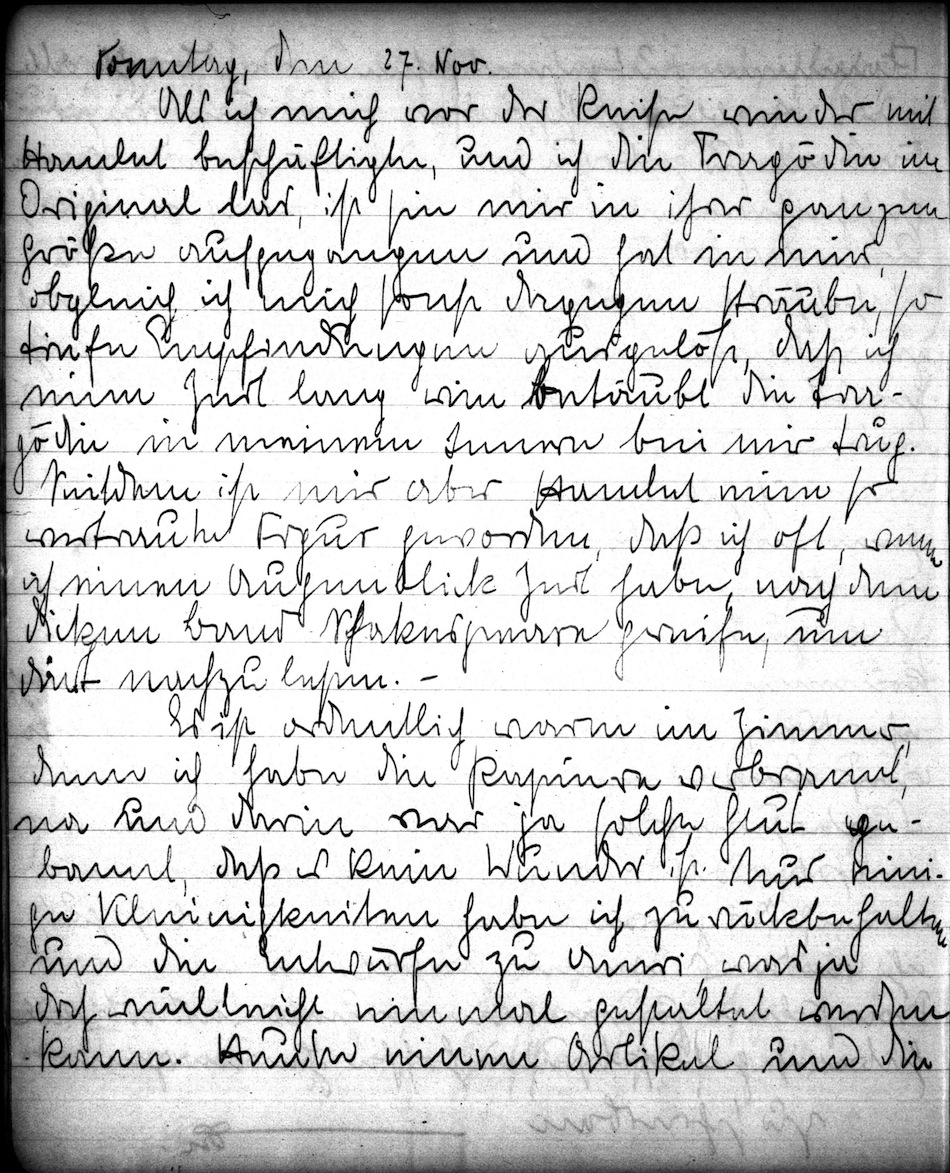 Sonntag, den 27. Nov.
Als ich mich vor der Reise wieder mit
Hamlet beschäftigte, und ich die Tragödie im
Original las, ist sie mir in ihrer ganzen
Größe aufgegangen und hat in mir,
obgleich ich mich sonst dagegen sträube, so
tiefe Empfindungen ausgelöst, daß ich
eine Zeit lang wie betäubt die Tra-
gödie in meinem Innern bei mir trug.
Seitdem ist mir aber Hamlet eine so
vertraute Figur geworden, daß ich oft, wenn
ich einen Augenblick Zeit habe, nach dem
dicken Band Shakespeare greife, um
dort nachzulesen. –
Es ist ordentlich warm im Zimmer,
denn ich habe die Papiere verbrannt,
na und darin war ja solche Glut ge-
bannt, daß es kein Wunder ist. Nur eini-
ge Kleinigkeiten habe ich zurückbehalten
und die Entwürfe zu was ja
doch vielleicht einmal gestaltet werden
kann. Heute einen Artikel und die